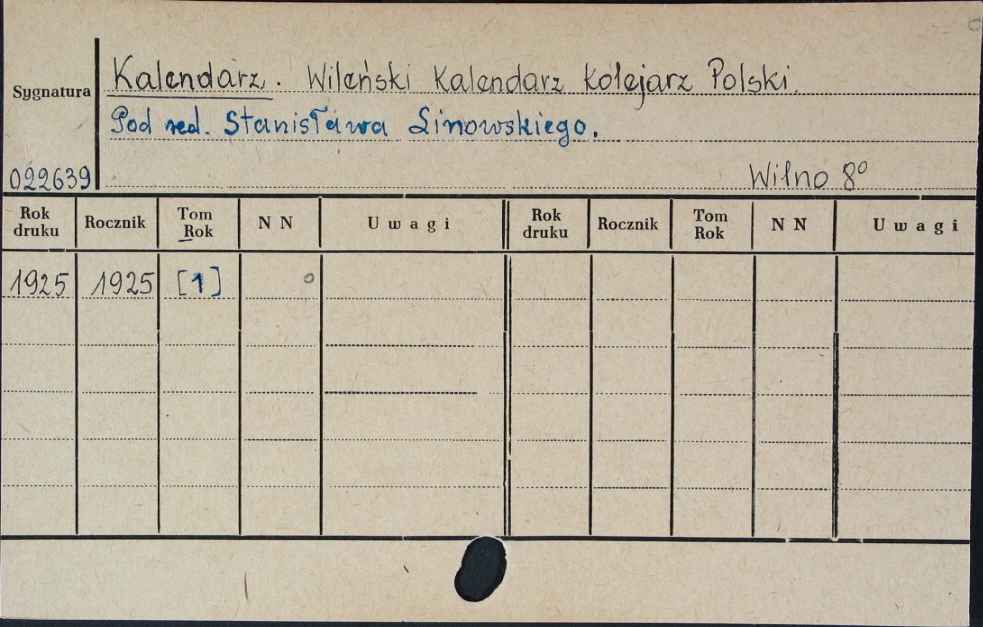 Kalendarz. Wileński Kalendarz Kolejarz Polski.
Sygnatura
Pod red. Stanisława Linowskiego.
022639
Wilno 8°
Rok druku Rocznik Tom Rok N N Uwagi Rok druku Rocznik Tom Rok N N Uwagi
1925 1925 [1]